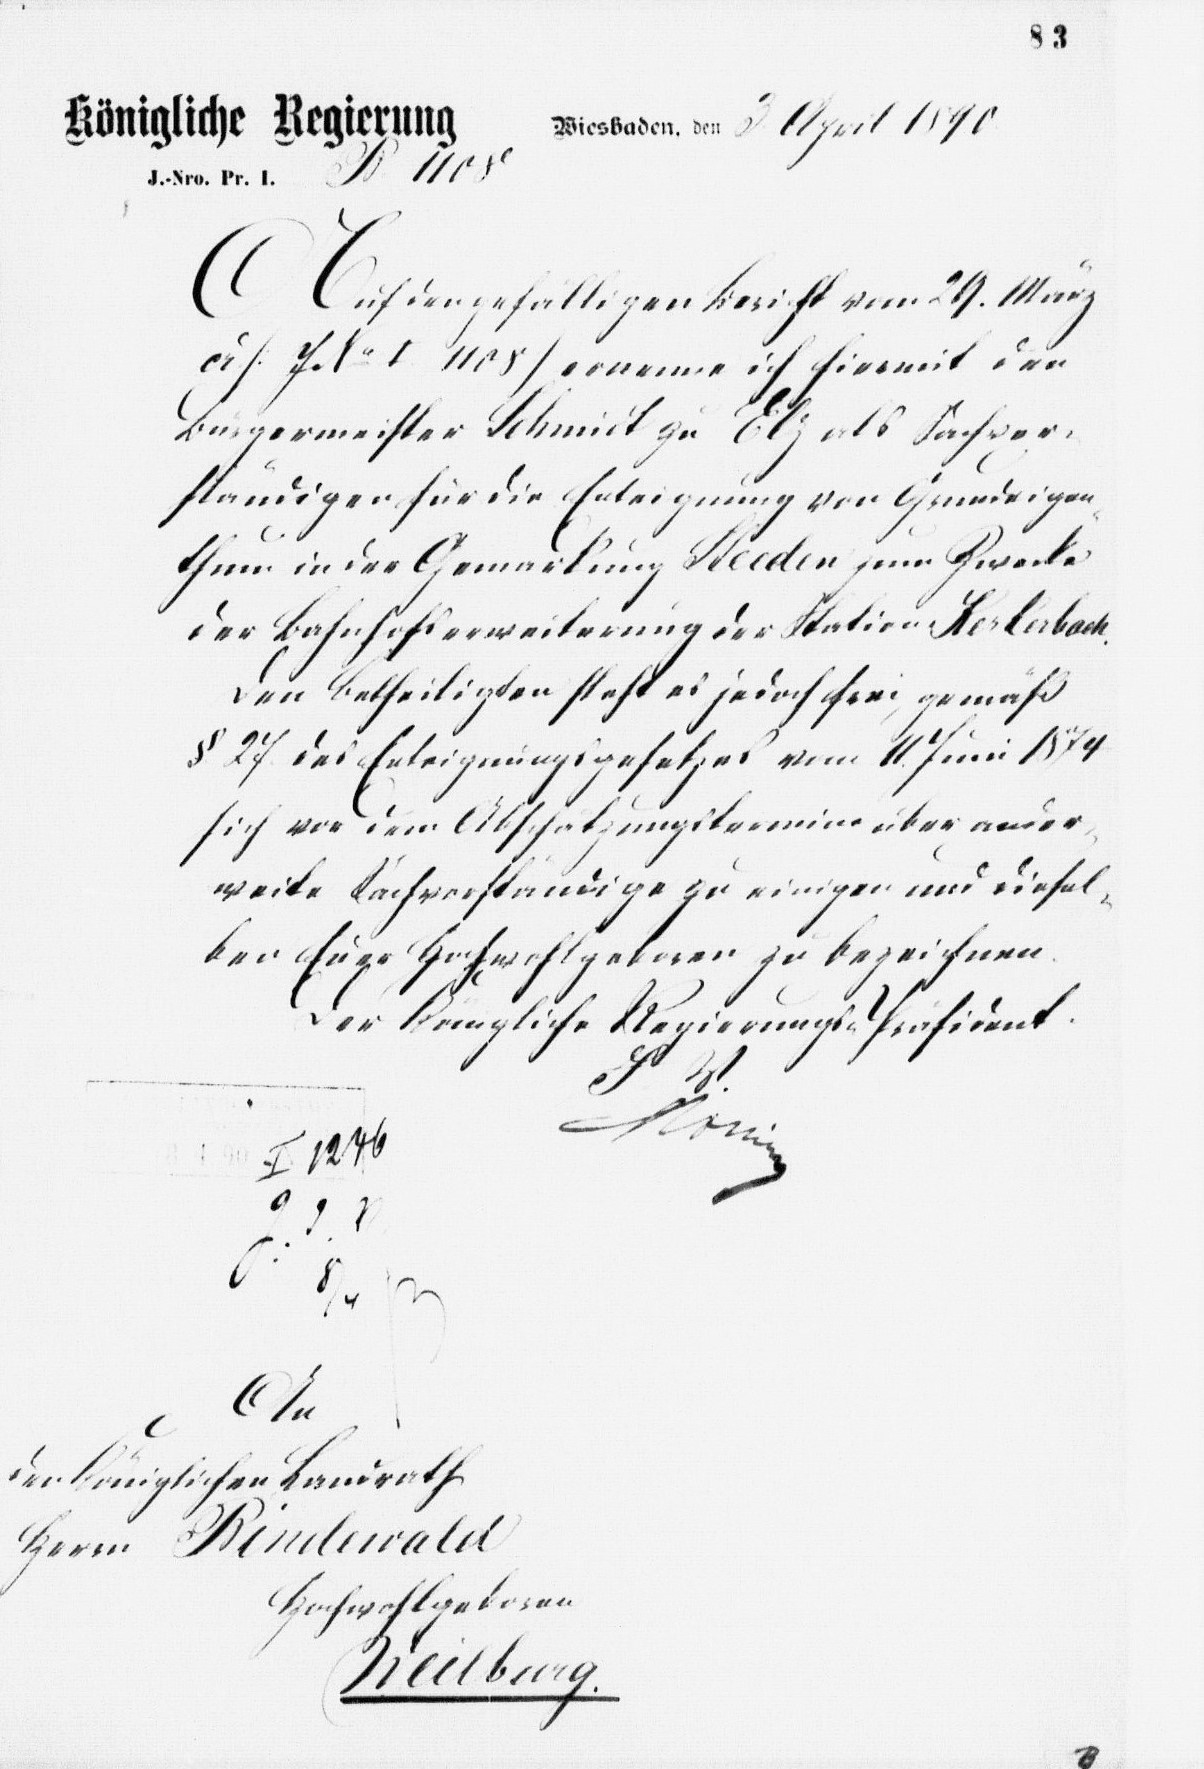 83
Königliche Regierung
Wiesbaden, den 3 April 1890
J.-Nro. Pr. I. B. 1108
Auf den gefälligen Bericht vom 29. März
cr /: J. No I 1108/ ernenne ich hiermit den
Bürgermeister Schmidt zu Elz als Sachver-
ständigen für die Enteignung von Grundeigen-
thum in der Gemarkung Steeden zum Zwecke
der Bahnhofserweiterung der Station Kerkerbach.
Den Betheiligten steht es jedoch frei, gemäß
§ 27 des Enteignungsgesetzes vom 11. Juni 1874
sich vor dem Abschätzungstermine über ander-
weite Sachverständige zu einigen und diesel-
ben Euer Hochwohlgeboren zu bezeichnen.
Der Königliche Regierungs-Präsident.
I. V.
I 1246
8/4
An
den Königlichen Landrath
Herrn
Hochwohlgeboren
Weilburg.